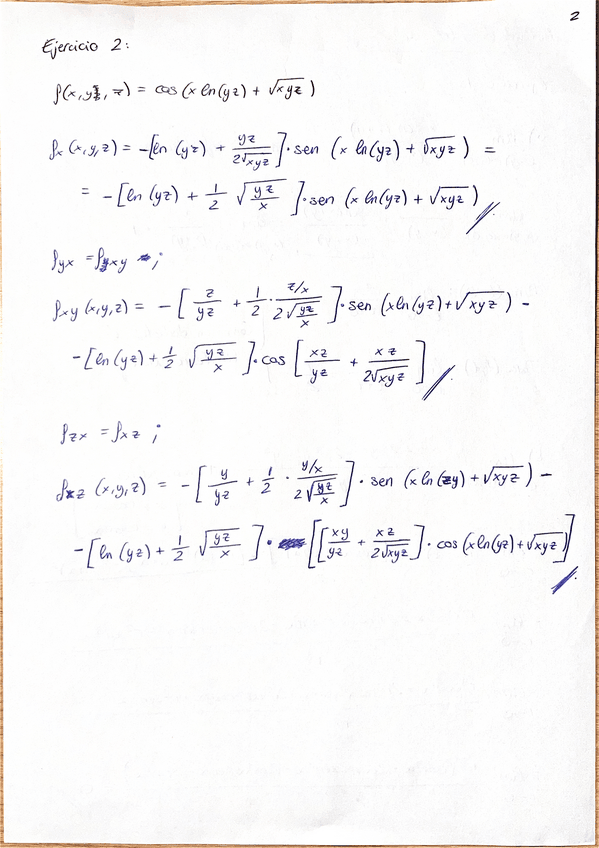 2
Ejercicio 2:
f(x,y,z) = cos (x ln(yz) + √xyz )
fx (x,y,z) = -[ln (yz) + yz/2√xyz]· sen (x ln(yz) + √xyz ) =
= -[ln (yz) + 1/2 √(yz/x) ]· sen (x ln(yz) + √xyz )
fyx = fxy ;
fxy (x,y,z) = - [ z/yz + 1/2 · (z/x)/(2√(yz/x)) ]· sen (xln(yz)+√xyz ) -
-[ln (yz) + 1/2 √(yz/x) ]· cos [ xz/yz + xz/2√xyz ]
fzx = fxz ;
fxz (x,y,z) = - [ y/yz + 1/2 · (y/x)/(2√(yz/x)) ] · sen (x ln(zy) + √xyz ) -
-[ln (yz) + 1/2 √(yz/x) ] · [[xy/yz + xz/2√xyz] · cos (xln(yz)+√xyz )]